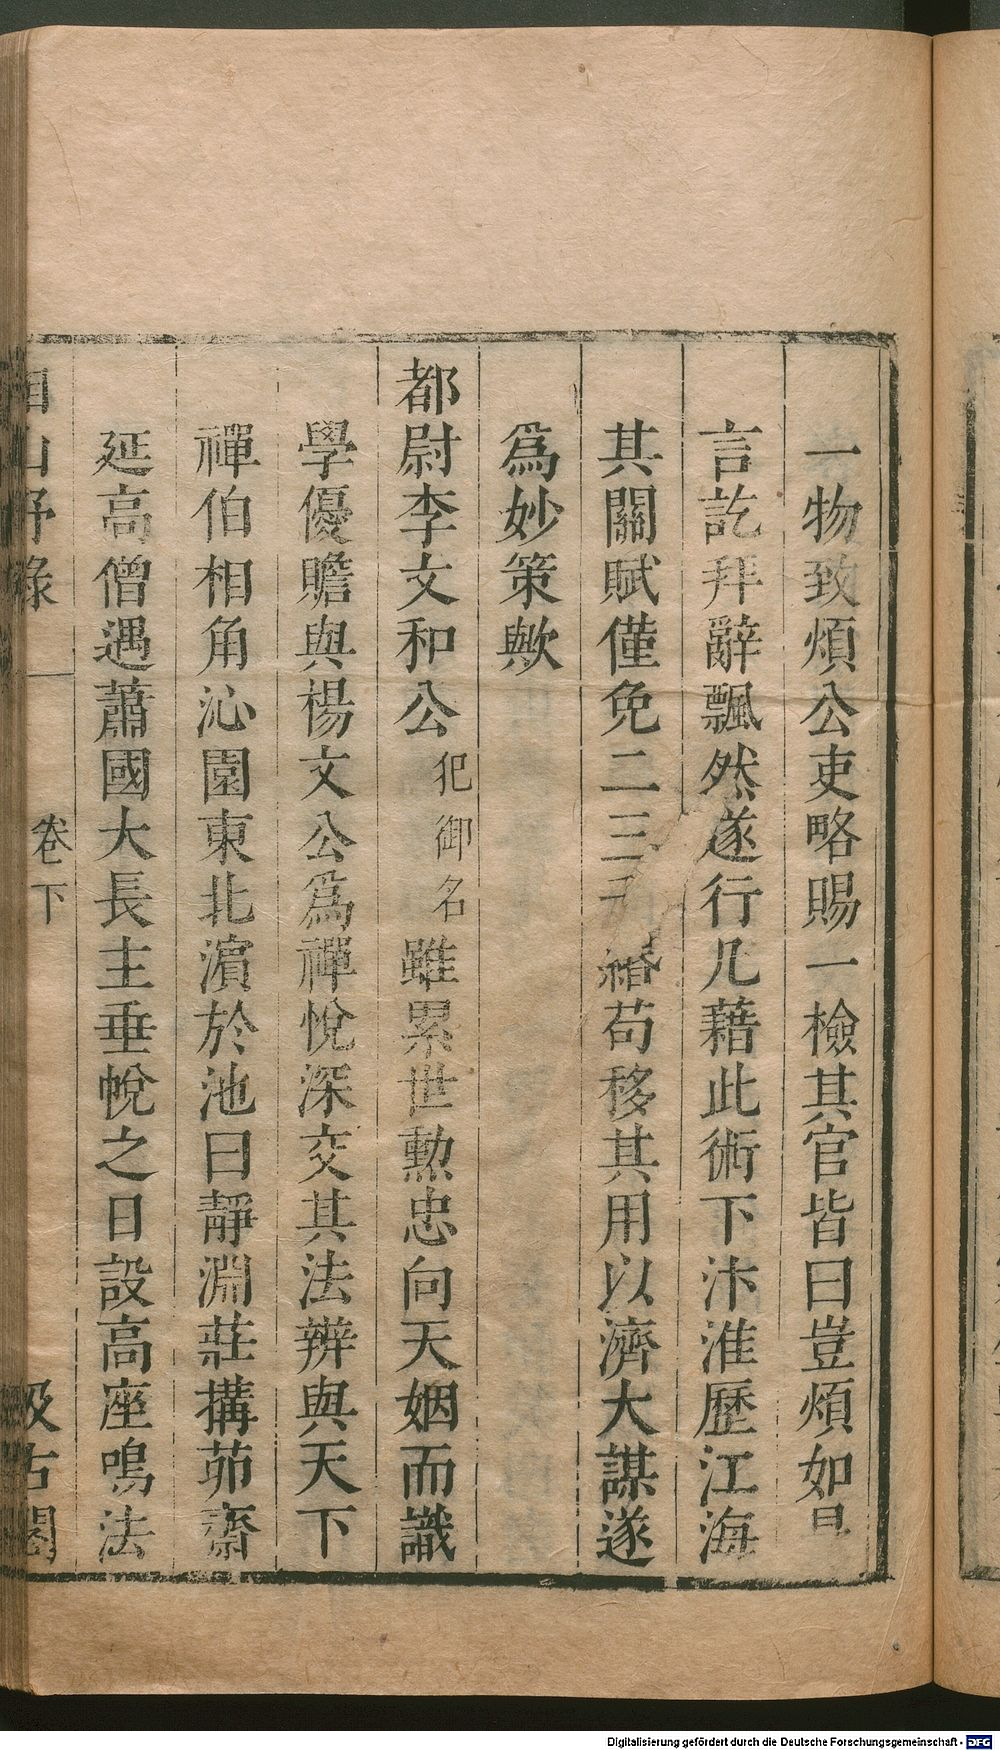 一物致煩公吏略賜一檢其官皆曰豈煩如
言訖拜辭飄然遂行凡藉此術下汴淮歷江海
其關賦僅免二三 緡苟移其用以濟大謀遂
爲妙策歟
都尉李文和公犯御名雖累世勲忠向天姻而識
學優贍與楊文公爲禪悅深交其法辨與天下
禪伯相角沁園東北濵於池曰靜淵莊搆茆齋
延高僧遇蕭國大長主垂帨之日設高座鳴法
山野錄 卷下 汲古閣
Digitalisierung gefördert durch die Deutsche Forschungsgemeinschaft - DFG